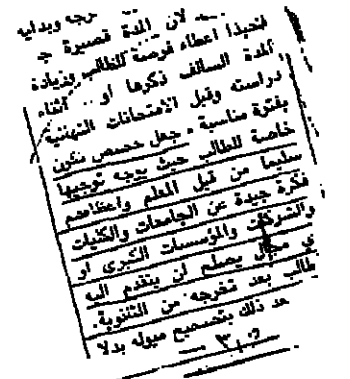 حرجه وبدايه
لان المدة قصيرة ج
فتحبذا اعطاء فرصة للطالب وزيادة
المدة السالف ذكرها او .. أثناء
دراسته وقبل الامتحانات النهائية
بفترة مناسبة - جعل حصص تكون
خاصة للطالب حيث يوجه توجيها
سليما من قبل المعلم واعطاءهم
فكرة جيدة عن الجامعات والكليات
والشركات والمؤسسات الكبرى او
ي مجال يصلح لن يتقدم اليه
طالب بعد تخرجه من الثانوية.
عد ذلك بتصحيح ميوله بدلا